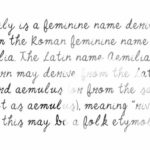 ily is a feminine name derive
m the Roman feminine name
ilia. The Latin name Aemilia
urn may derive from the Lat
ord aemulus (or from the s
ot as aemulus), meaning "riv
this may be a folk etymol